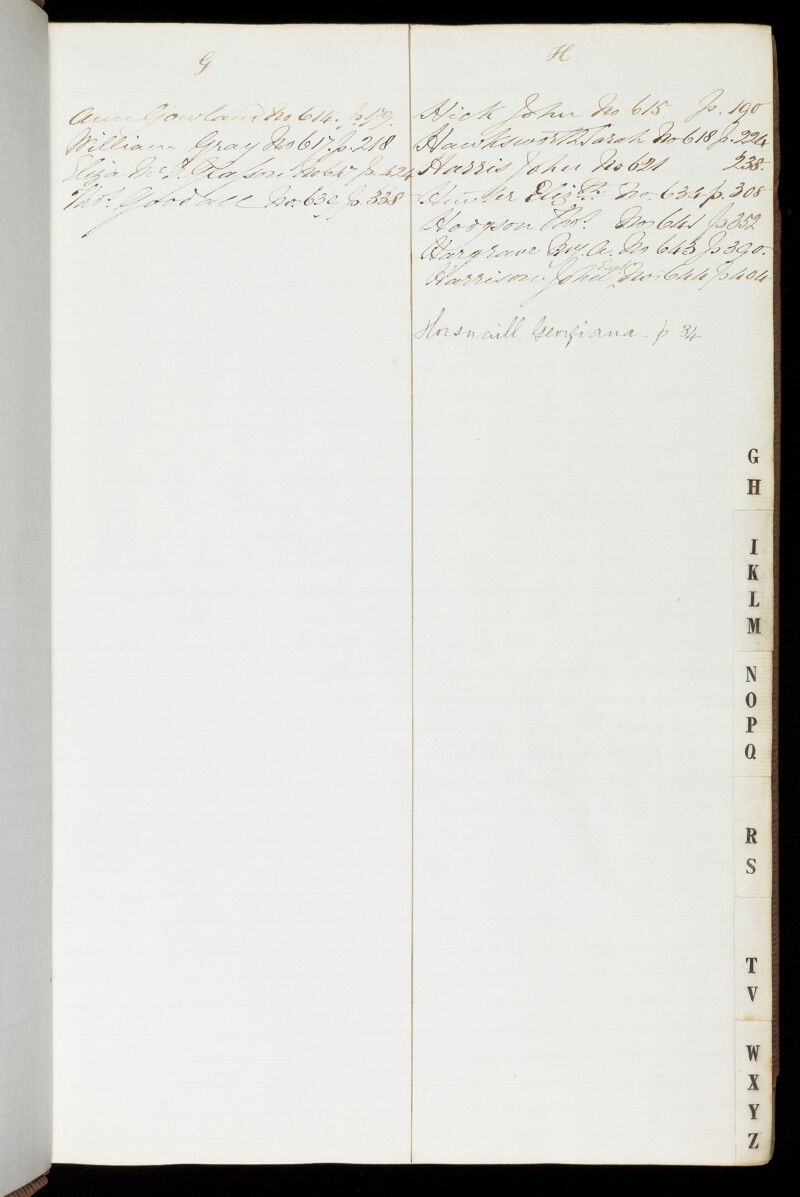 G
Ann Gowland No 614. p. 179.
William Gray No 617. p. 218
Eliza Mc No 647 p. 424
Thos. Goodall No. 639 p. 338
H
Hick John No 615 p. 190
Hawksworth Sarah No 618 p. 224
Harris John No 621 238.
Hunter Elizth. No. 634 p. 308
Hodgson Thos. No 641 p 352
Hargrave Wm. A. No 643 p 390.
Harrison John No 644 p 404
Horsnaill Georgiana - p 34
G
H
I
K
L
M
N
O
P
Q
R
S
T
V
W
X
Y
Z